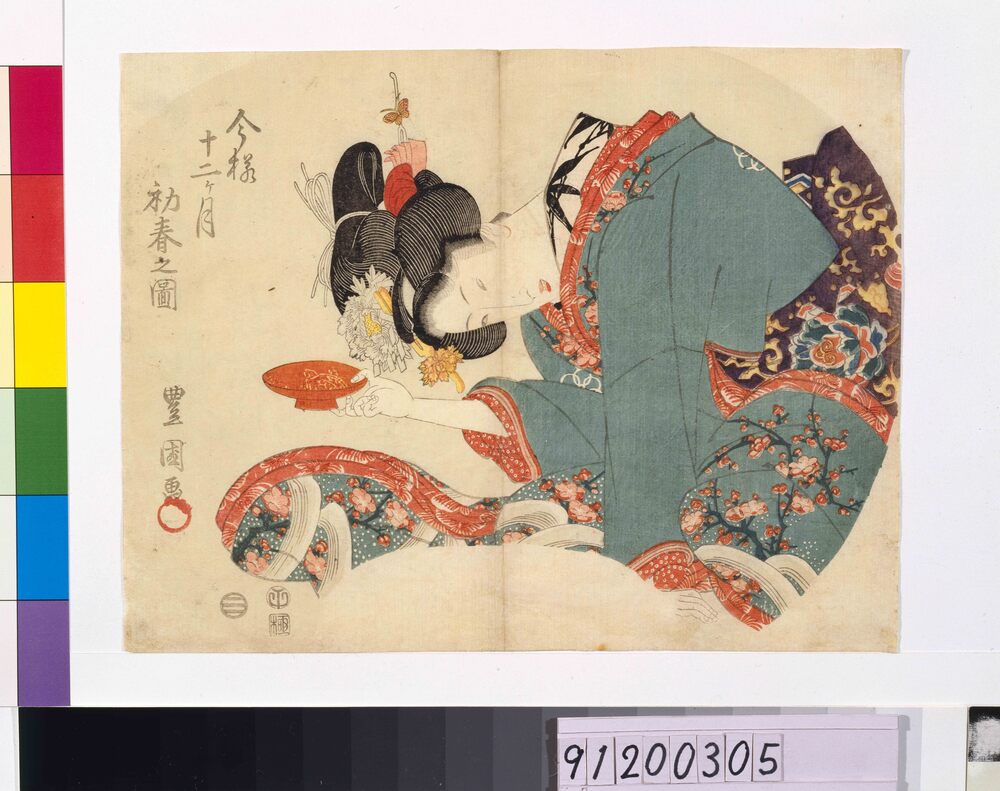 今様
十二ヶ月
初春之圖
豊國画
極
91200305